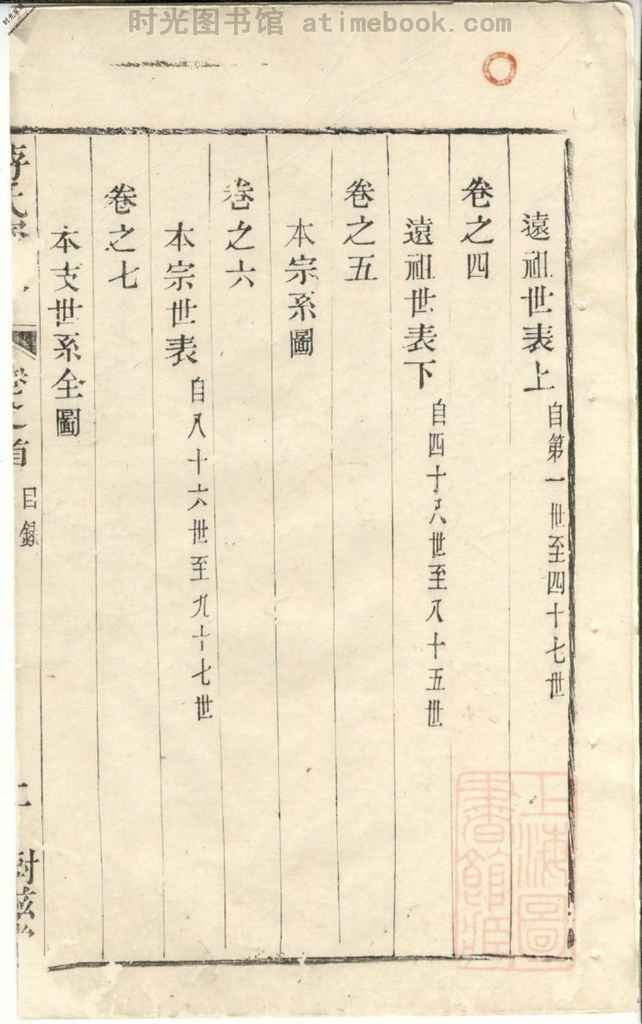 时光图书馆 atimebook.com
遠祖世表上 自第一世至四十七世
卷之四
遠祖世表下 自四十八世至八十五世
卷之五
本宗系圖
卷之六
本宗世表 自八十六世至九十七世
卷之七
本支世系全圖
卷之首 目錄
二
上海圖書館藏